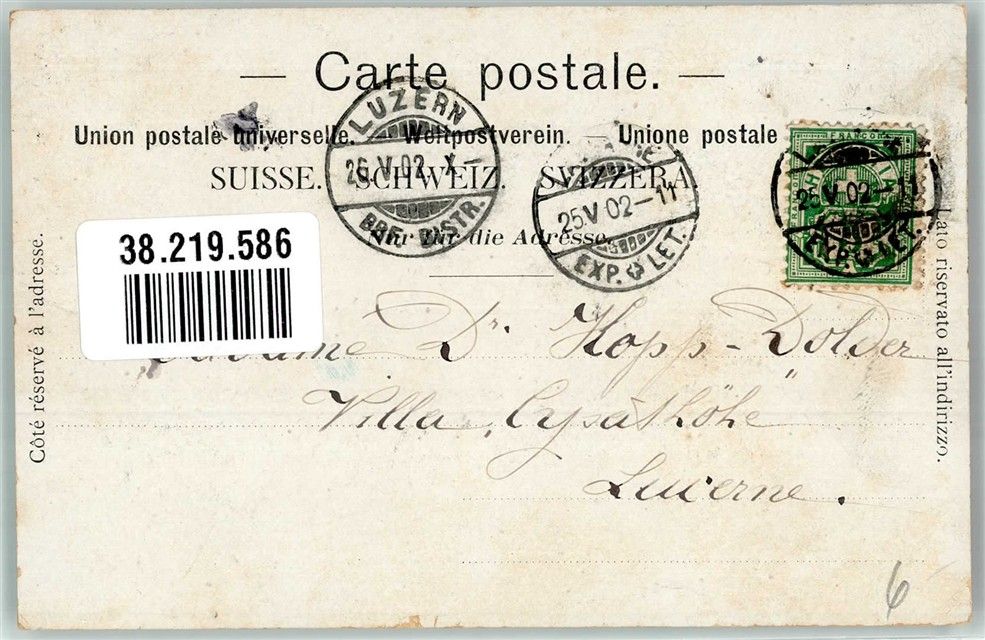 Carte postale.
Union postale universelle. — Weltpostverein. — Unione postale
SUISSE. SCHWEIZ. SVIZZERA
Nur für die Adresse.
LUZERN
26.V.02.-X-
BRF. DISTR.
25.V.02-11
EXP. LET.
FRANCO
25.V.02-11
EXP. LET.
38.219.586
Côté réservé à l'adresse.
Lato riservato all'indirizzo.
Madame Dr. Kopp-Dolder
Villa "Cysathöhe"
Lucerne.
6